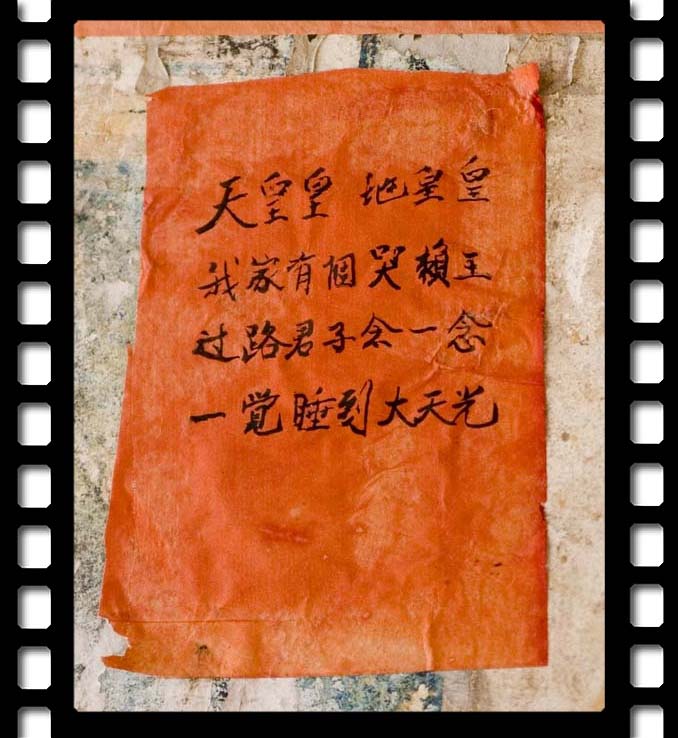 天皇皇 地皇皇
我家有個哭賴王
过路君子念一念
一覚睡到大天光